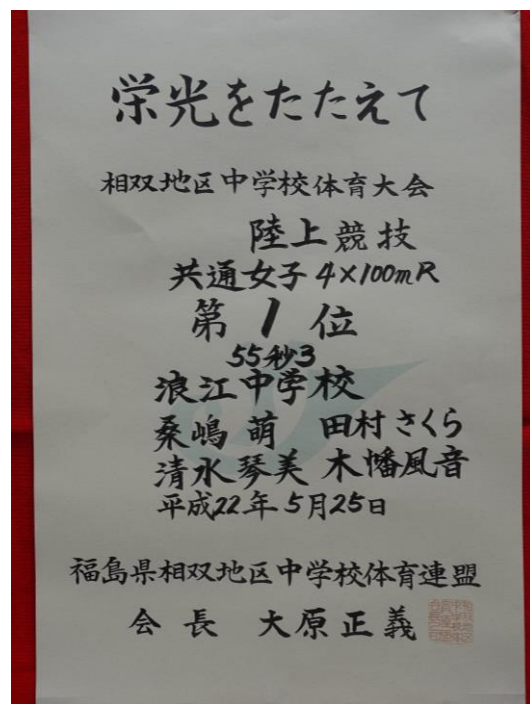 栄光をたたえて
相双地区中学校体育大会
陸上競技
共通女子4×100mR
第1位
55秒3
浪江中学校
桑嶋萌 田村さくら
清水琴美 木幡風音
平成22年5月25日
福島県相双地区中学校体育連盟
会長 大原正義